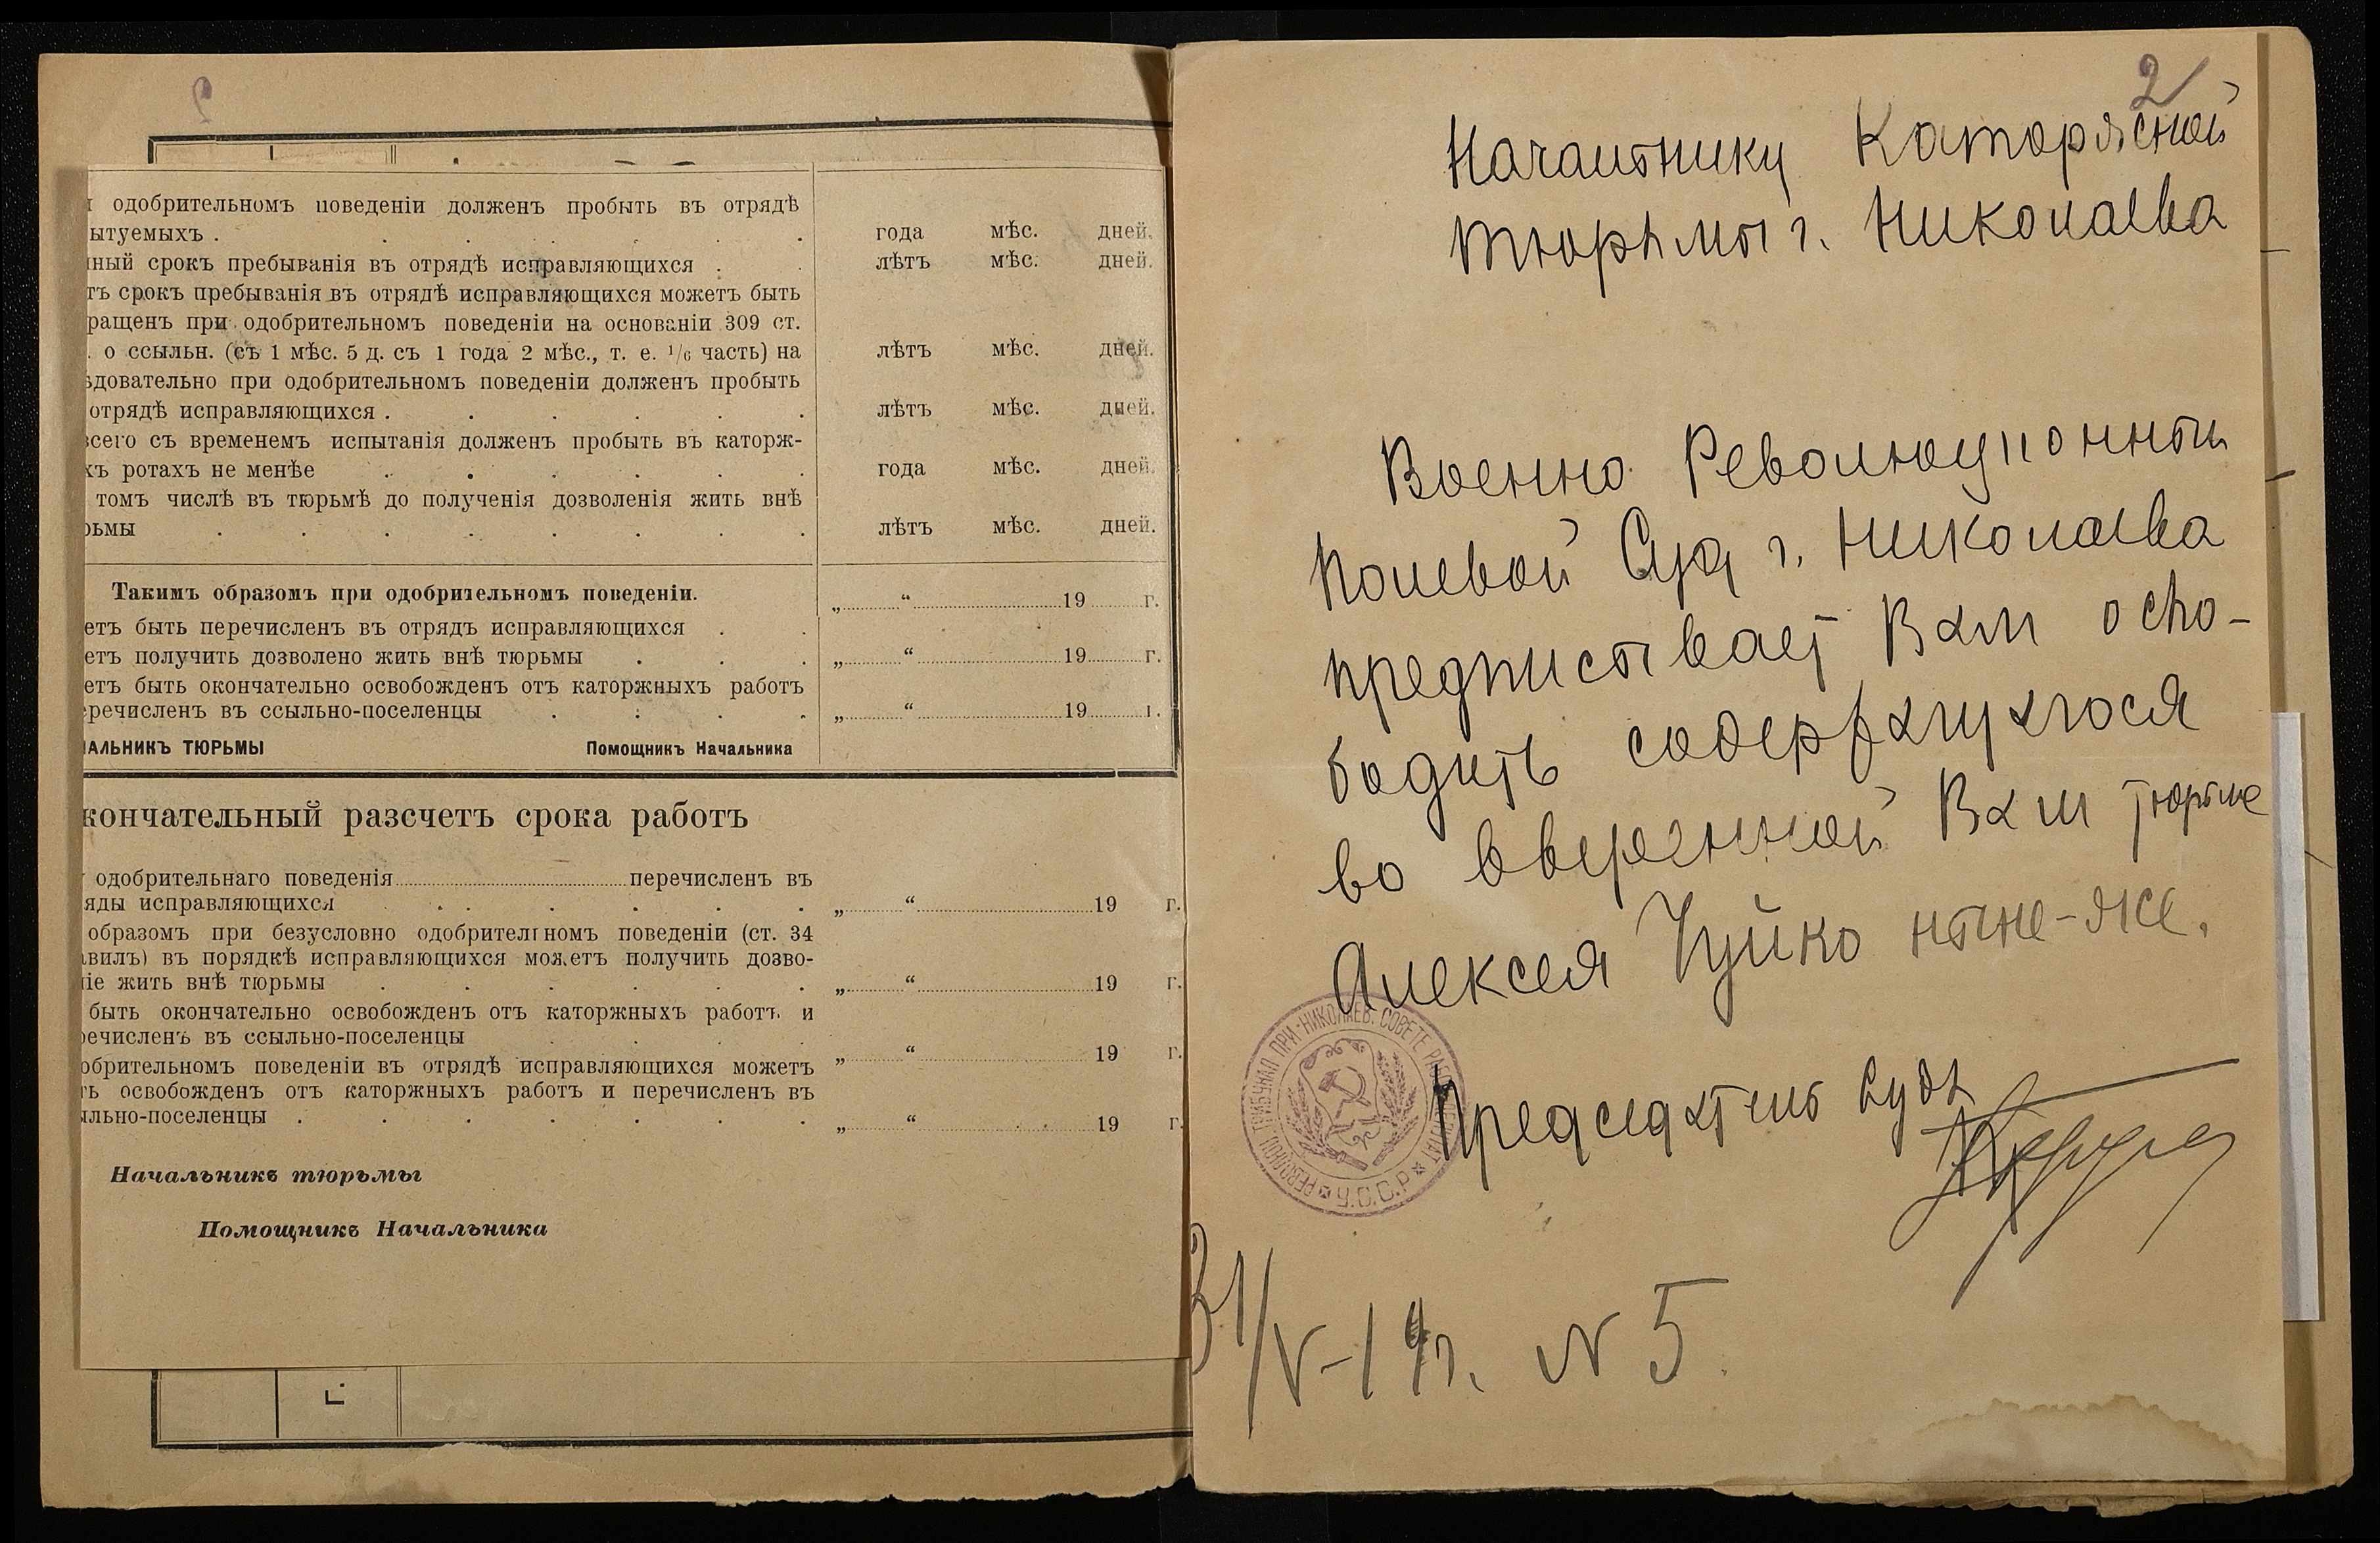 одобрительномъ поведеніи долженъ пробыть въ отрядѣ
ытуемыхъ . года мѣс. дней.
ный срокъ пребыванія въ отрядѣ исправляющихся . лѣтъ мѣс. дней.
тъ срокъ пребыванія въ отрядѣ исправляющихся можетъ быть
ращенъ при одобрительномъ поведеніи на основаніи 309 ст.
. о ссыльн. (съ 1 мѣс. 5 д. съ 1 года 2 мѣс., т. е. 1/6 часть) на лѣтъ мѣс. дней.
ѣдовательно при одобрительномъ поведеніи долженъ пробыть
отрядѣ исправляющихся . лѣтъ мѣс. дней.
всего съ временемъ испытанія долженъ пробыть въ каторж-
хъ ротахъ не менѣе года мѣс. дней.
томъ числѣ въ тюрьмѣ до полученія дозволенія жить внѣ
рьмы лѣтъ мѣс. дней.
Такимъ образомъ при одобрительномъ поведеніи.
„ “ 19 г.
етъ быть перечисленъ въ отрядъ исправляющихся
етъ получить дозволено жить внѣ тюрьмы „ “ 19 г.
етъ быть окончательно освобожденъ отъ каторжныхъ работъ
еречисленъ въ ссыльно-поселенцы „ “ 19 г.
АЛЬНИКЪ ТЮРЬМЫ Помощникъ Начальника
кончательный разсчетъ срока работъ
одобрительнаго поведенія перечисленъ въ
яды исправляющихся „ “ 19 г.
образомъ при безусловно одобрительномъ поведеніи (ст. 34
авилъ) въ порядкѣ исправляющихся можетъ получить дозво-
ніе жить внѣ тюрьмы „ “ 19 г.
быть окончательно освобожденъ отъ каторжныхъ работъ и
речисленъ въ ссыльно-поселенцы „ “ 19 г.
обрительномъ поведеніи въ отрядѣ исправляющихся можетъ
ть освобожденъ отъ каторжныхъ работъ и перечисленъ въ
ыльно-поселенцы . „ “ 19 г.
Начальникъ тюрьмы
Помощникъ Начальника
2
Начальнику Каторжной
тюрьмы г. Николаева
Военно Революционный
Полевой Суд г. Николаева
предписывает Вам осво-
бодить содержащагося
во вверенной Вам тюрьме
Алексея Чуйко ныне-же.
РЕВОЛЮЦ ТРИБУНАЛ ПРИ НИКОЛАЕВ. СОВЕТЕ РАБ. ДЕПУТАТ
У.С.С.Р
Председатель Суда
31/V-19г. N 5.